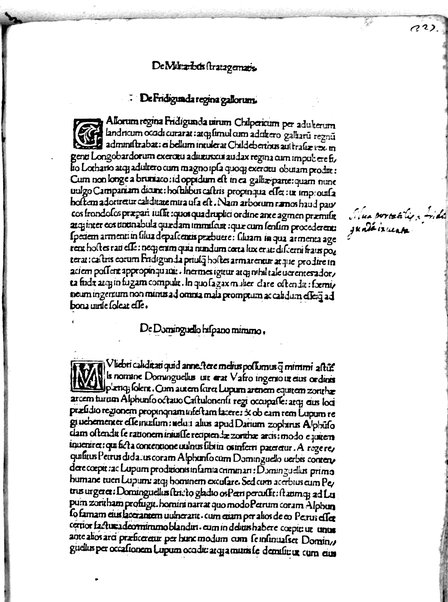 De Militaribus stratagematis.
De Fridigunda regina gallorum.
GAllorum regina Fridigunda uirum Chilpericum per adulterum
landricum occidi curarat: atq; simul cum adultero galliarũ regnũ
administrabat: ei bellum intulerat Childebertus australiæ rex. in
genti Longobardorum exercitu adiutus: audax regina cum impubere fi
lio Lothario atq; adultero cum magno ipsa quoq; exercitu obuiam prodiit:
Cum non longe a id oppidum est in ea galliæ parte: quam nunc
uulgo Campaniam dicunt: hostilibus castris propinqua esset: ut
hostem adoriretur calliditate mira usa est. Nam arborum ramos haud
cos frondosos præpari iussit: quos quadruplici ordine ante agmen præmisit
atq; inter eos tintinabula quædam immiscuit: quæ cum sensim procederent
speciem armenti in silua depascentis præbuere: Siluam in qua armenta age
rent hostes rati esse: neq; enim quia nundum certa lux erat: discerni fraus po
terat: castris eorum Fridigunda priusq̃ hostes armarentur atque prodire in
aciem possent appropinquauit. Inermes igitur atq; nihil tale
ta fudit atq; in fugam compulit. In quo sagax mulier clare ostendit: fœmi
neum ingenium non minus ad omnia mala promptum ac calidum esse q̃ ad
bona uirile soleat esse.
De Dominguello hispano mimmo.
MVliebri caliditati quid annectere melius possumus q̃ mimmi
is nomine Dominguellus uir erat Vafro ingenio ut eius ordinis
pleriq; solent. Cum autem Lupus arenem equitem zorithæ
arcem turum Alphunso octauo Castulonensi regi occupasset: atq; eius loci
præsidio regionem propinquam infestam faceret: & ob eam rem Lupum re
gi uehementer esset inuisum: uelut alius apud Darium zophirus Alphũso
clam ostendit se rationem iniisse recipiendæ zorithæ arcis: modo equitem
inueniret: qui ficta contentione uulnus sibi in os inferri pateretur. A rege re
quisitus Petrus dida. us coram Alphunso cum Dominguello uerbis conten
dere cœpit: ac Lupum proditionis infamia criminari: Dominguellus primo
humane tueri Lupum: atq; hominem excusare. Sed cum acerbius eum Pe
trus urgeret: Dominguellus stricto gladio os Petri percussit: statimq; ad Lu
pum zoritham profugit. homini narrat quo modo Petrum coram Alphun
so famam eius lacerantem uulnerarit. cum etiam per alios de eo Petrus esset
certior factus: adeo mimmo blandiri. cum in deliciis habere cœpit: ut unus
ante alios arci præficeretur per hunc modum cum se insinuasset Domin
guellus per occasionem Lupum occidit: atq; a muris se demisit: ut cum eius